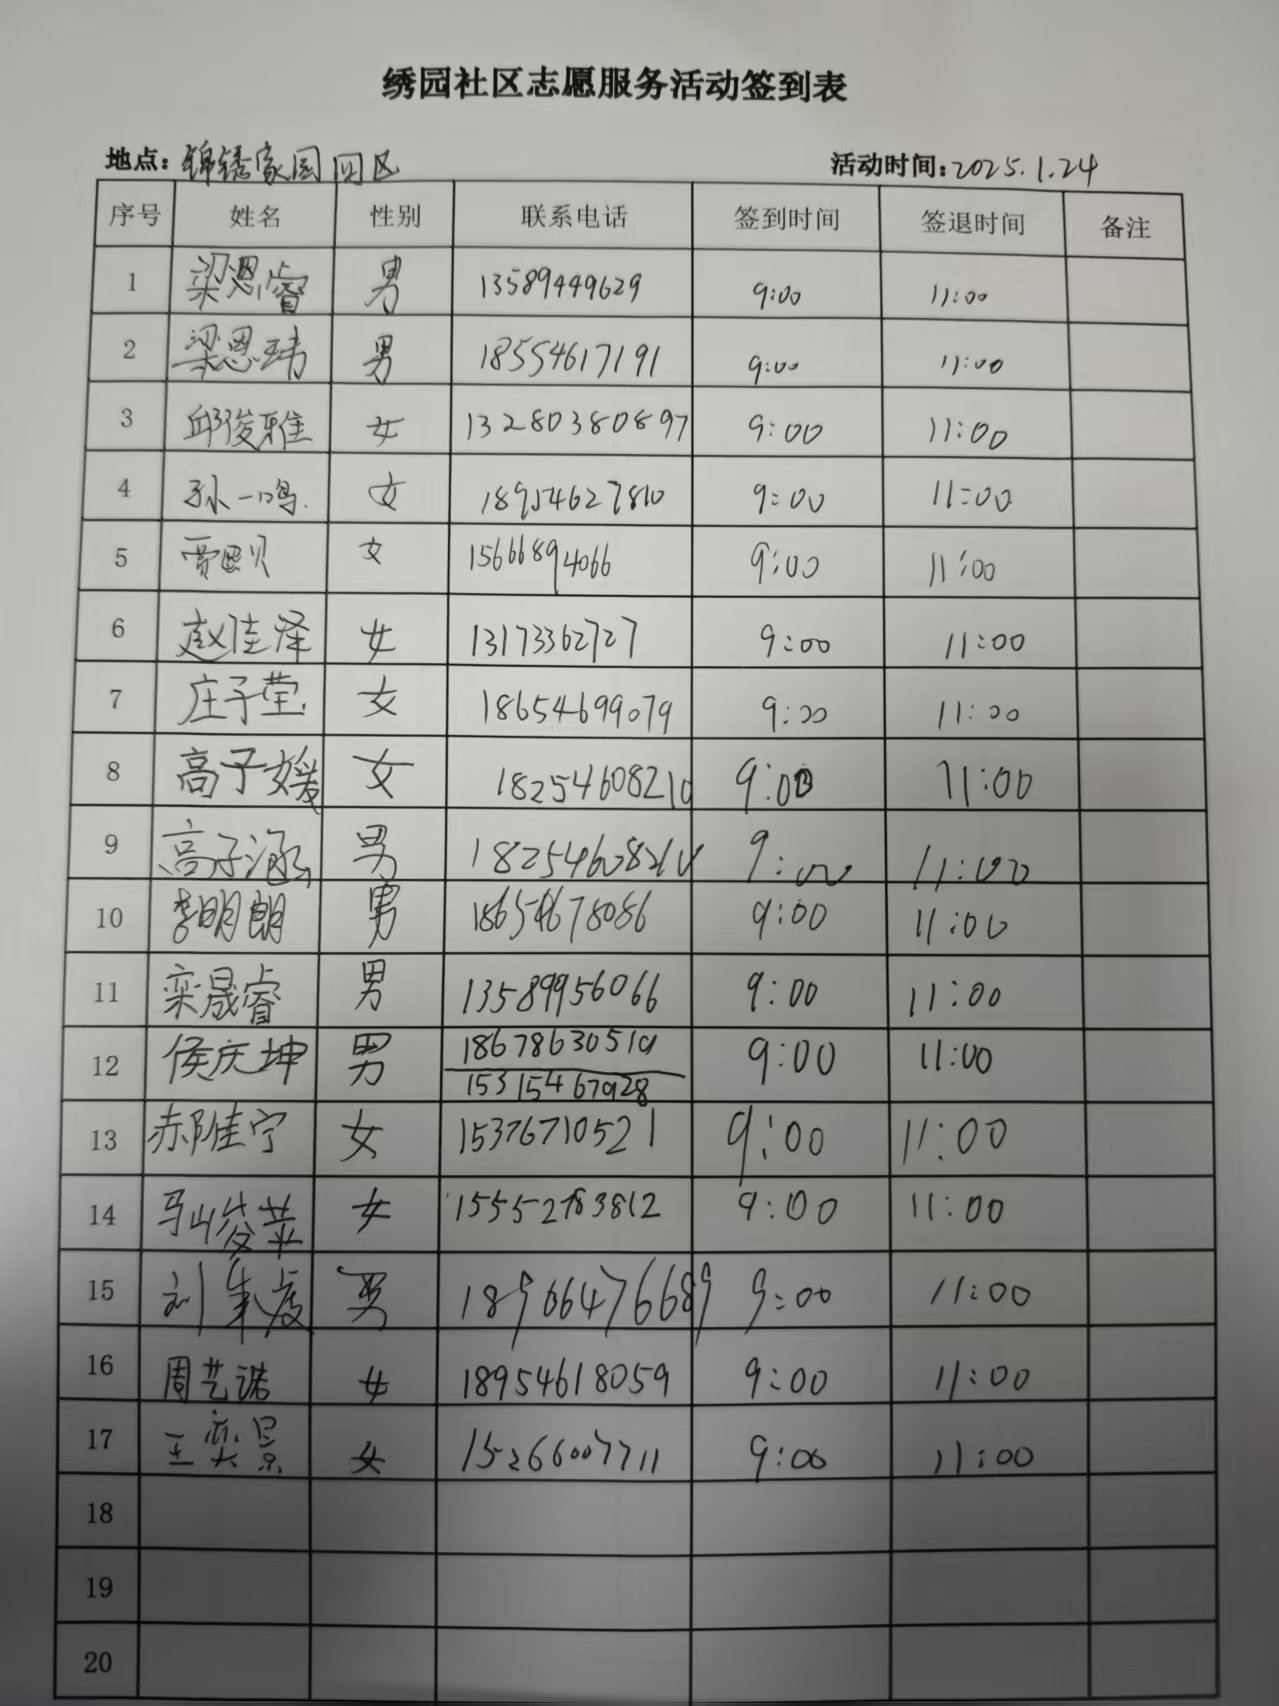 绣园社区志愿服务活动签到表
地点：锦绣家园四区 活动时间：2025.1.24
序号 姓名 性别 联系电话 签到时间 签退时间 备注
1 梁恩睿 男 13589449629 9:00 11:00
2 梁恩玮 男 18554617191 9:00 11:00
3 邱俊雅 女 13280380897 9:00 11:00
4 孙一鸣 女 18954627810 9:00 11:00
5 贾熙贝 女 15666894066 9:00 11:00
6 赵佳泽 女 13173362727 9:00 11:00
7 庄子莹 女 18654699079 9:00 11:00
8 高子媛 女 18254608210 9:00 11:00
9 高子涵 男 18254608210 9:00 11:00
10 李明朗 男 18654678086 9:00 11:00
11 栾晟睿 男 13589956066 9:00 11:00
12 侯庆坤 男 18678630519 9:00 11:00
15315467928
13 郝佳宁 女 15376710521 9:00 11:00
14 马山苹 女 15552783812 9:00 11:00
15 刘 男 18906476689 9:00 11:00
16 周艺诺 女 18954618059 9:00 11:00
17 王奕景 女 15266007711 9:00 11:00
18
19
20